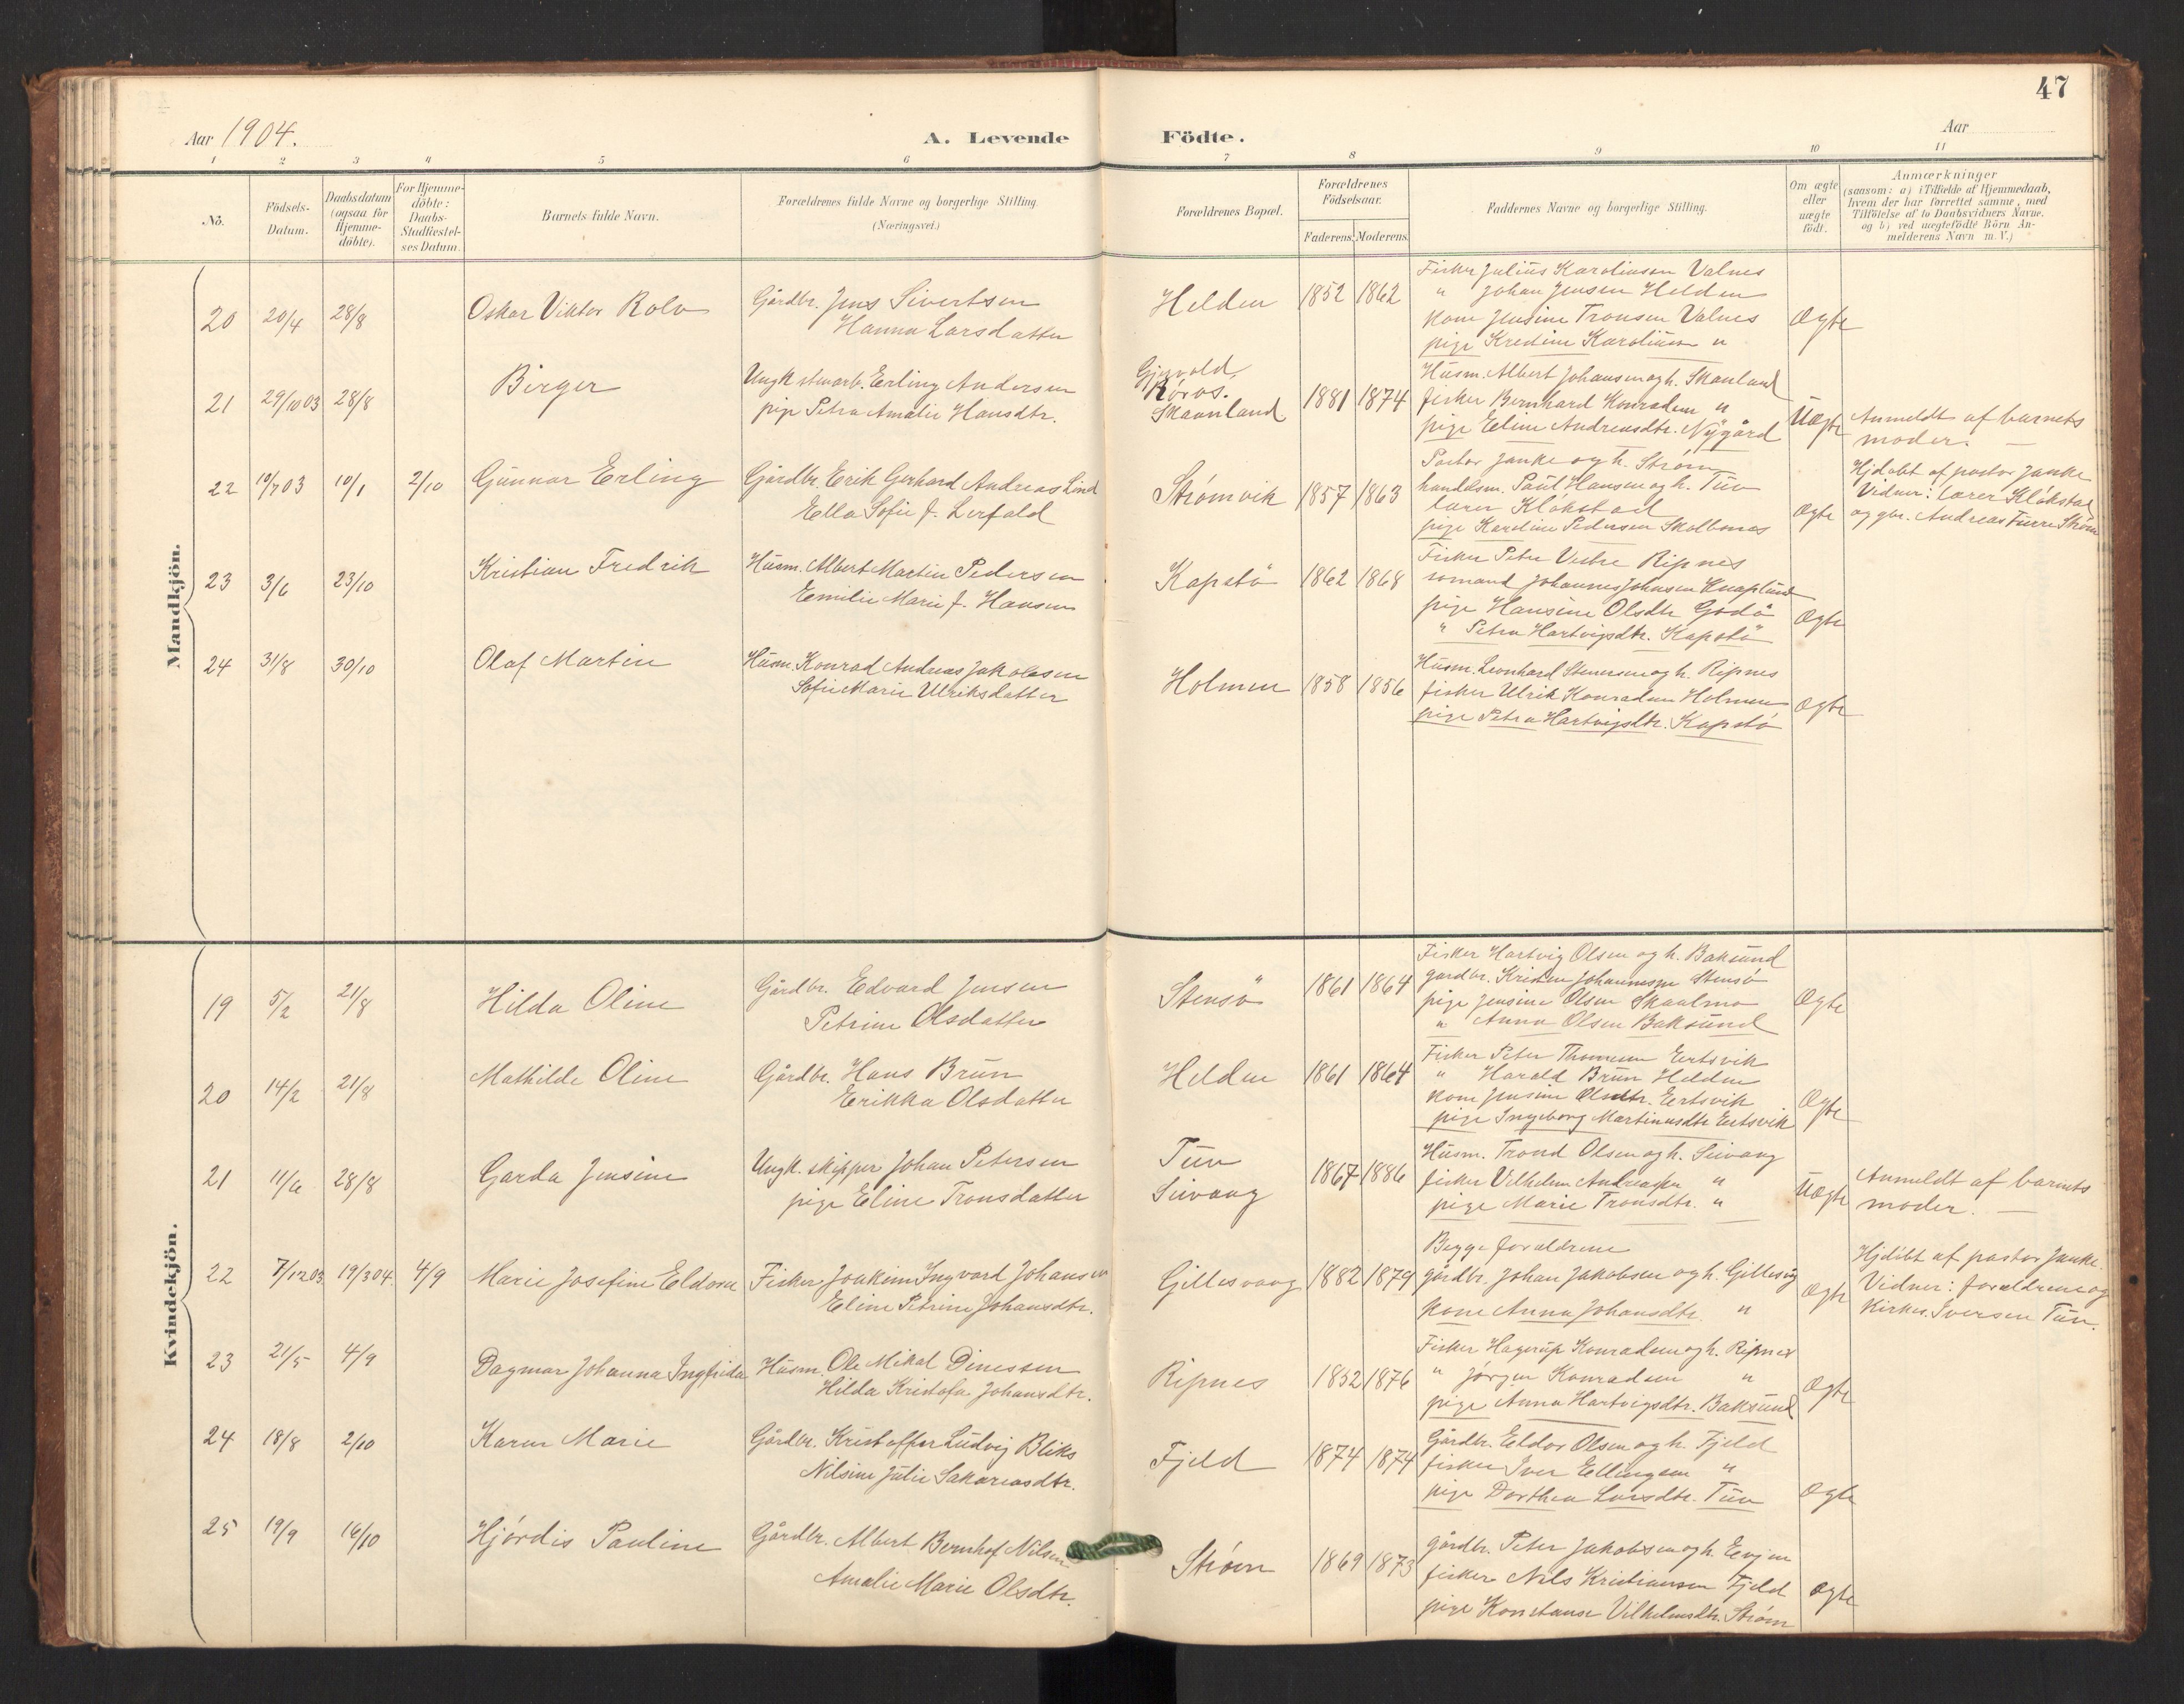 47
Aar 1904.
A. Levende Födte.
Aar
1 2 3 4 5 6 7 8 9 10 11
No.
Födsels-Datum.
Daabsdatum (ogsaa for Hjemme-döbte).
For Hjemme-döbte: Daabs-Stadfæstel-ses Datum.
Barnets fulde Navn.
Forældrenes fulde Navne og borgerlige Stilling. (Næringsvei.)
Forældrenes Bopæl.
Forældrenes Födselsaar.
Faderens. Moderens.
Faddernes Navne og borgerlige Stilling.
Om ægte eller uægte födt.
Anmærkninger
(saasom: a) i Tilfælde af Hjemmedaab,
hvem der har forrettet samme, med
Tilföielse af to Daabsvidners Navne.
og b) ved uægtefödte Börn An-
melderens Navn m.V.)
Mandkjön.
20 20/4 28/8 Oskar Viktor Rolv
Gårdbr. Jens Sivertsen
Hanna Larsdatter
Helden 1852 1862
Fisker Julius Karolinsen Valnes
" Johan Jensen Helden
kone Jensine Tronsen Valnes
pige Kredine Karolinsen "
Ægte
21 29/10 03 28/8 Birger
Ungk. Erling Andersen
pige Petra Amalie Hansdtr.
Røros.
Skaanland
1881 1874
Husm. Albert Johansen og h. Skanland
fisker Bernhard Konradsen "
pige Eline Andreasdtr. Nygård
Uægte
Anmeldt af barnets
moder. —
22 10/7 03 10/1 2/10 Gunnar Erling
Gårdbr. Erik Gerhard Andreas Lind
Ella Sofie f. Lerfald
Strømvik 1857 1863
Pastor Janke og h. Strøm
handelsm. Paul Hansen og h. Tuv
lærer Kløkstad
pige Karoline Pedersen Skolbones
Ægte
Hjdøbt af pastor Janke
Vidner: lærer Kløkstad
og gbr. Andreas Furre Strøm
23 3/6 23/10 Kristian Fredrik
Husm. Albert Martin Pedersen
Emilie Marie f. Hansen
Kapstö 1862 1868
Fisker Peter Vestre Ripnes
sømand Johannes Johnsen Knaplund
pige Hansine Olsdtr. Godö
" Petra Hartvigsdtr. Kapstö
Ægte
24 31/8 30/10 Olaf Martin
Husm. Konrad Andreas Jakobsen
Sofie Marie Ulriksdatter
Holmen 1858 1856
Husm. Leonhard Stenersen og h. Ripnes
fisker Ulrik Konradsen Holmen
pige Petra Hartvigsdtr. Kapstö
Ægte
Kvindekjön.
19 5/2 21/8 Hilda Oline
Gårdbr. Edvard Jensen
Petrine Olsdatter
Stensö 1861 1864
Fisker Hartvig Olsen og h. Baksund
gårdbr. Kristen Johannesen Stensö
pige Jensine Olsen Skaalmo
" Anna Olsen Baksund
Ægte
20 14/2 21/8 Mathilde Oline
Gårdbr. Hans Brun
Erikka Olsdatter
Helden 1861 1864
Fisker Peter Thomesen Eertsvik
" Harald Brun Helden
kone Jensine Olsdtr. Eertsvik
pige Ingeborg Martinusdtr. Eertsvik
Ægte
21 11/6 28/8 Garda Jensine
Ungk. skipper Johan Petersen
pige Eline Tronsdatter
Tuv
Seivaag
1867 1886
Husm. Trond Olsen og h. Seivaag
fisker Vilhelm Andreasen "
pige Marie Tronsdtr. "
Uægte
Anmeldt af barnets
moder. —
22 7/12 03 19/3 04. 4/9 Marie Josefine Eldora
Fisker Joakim Ingvard Johansen
Eline Petrine Johansdtr.
Gillesvaag 1882 1879
Begge forældrene
gårdbr. Johan Jakobsen og h. Gillesvg
kone Anna Johansdtr. "
Ægte
Hjdöbt af pastor Janke.
Vidner: forældrene og
kirkes. Iversen Tuv.
23 21/5 4/9 Dagmar Johanna Ingfrida
Husm. Ole Mikal Dinessen
Hilda Kristofa Johansdtr.
Ripnes 1852 1876
Fisker Hagerup Konradsen og h. Ripnes
" Jørgen Konradsen "
pige Anna Hartvigsdtr. Baksund
Ægte
24 18/8 2/10 Karen Marie
Gårdbr. Kristoffer Ludvig Bliks
Nilsine Julie Sakariasdtr.
Fjeld 1874 1874
Gårdbr. Eldor Olsen og h. Fjeld
fisker Iver Ellingsen "
pige Dorthea Larsdtr. Tuv
Ægte
25 19/9 16/10 Hjørdis Pauline
Gårdbr. Albert Bernhof Nilsen
Amalie Marie Olsdtr.
Strøm 1869 1873
gårdbr. Peter Jakobsen og h. Evjen
fisker Nils Kristiansen Fjeld
pige Konstanse Vilhelmsdtr. Strøm
Ægte